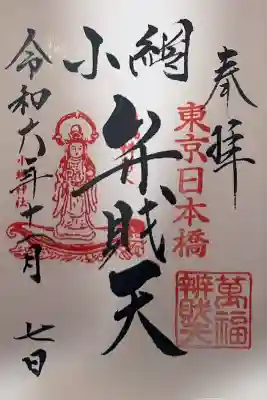 奉拝
東京日本橋
萬福
辨財天
小網
弁財天
小網神社
令和六年十一月
七日